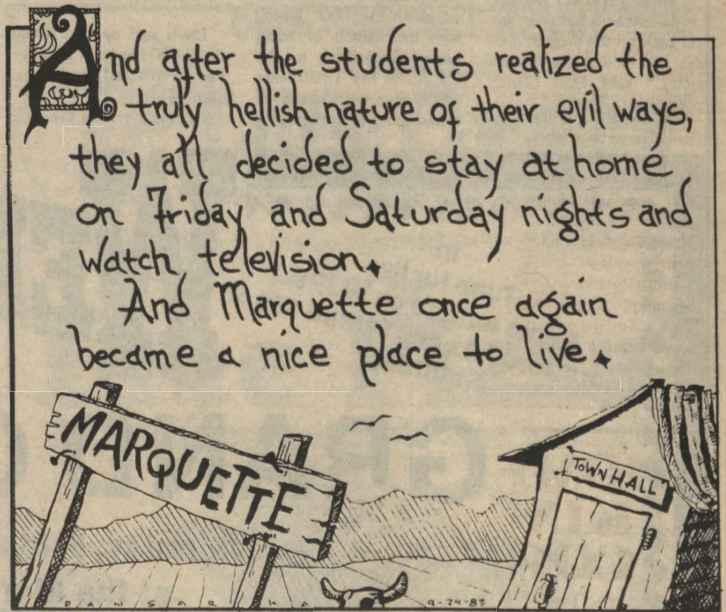 And after the students realized the
truly hellish nature of their evil ways,
they all decided to stay at home
on Friday and Saturday nights and
watch television.
And Marquette once again
became a nice place to live.
MARQUETTE
TOWN HALL
9-29-83